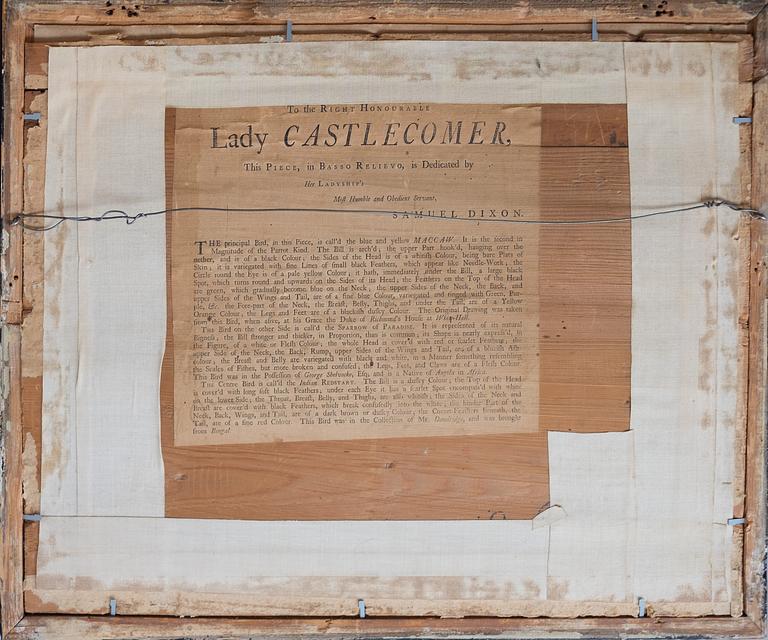 To the RIGHT HONOURABLE
Lady CASTLECOMER,
This PIECE, in BASSO RELIEVO, is Dedicated by
Her LADYSHIP's
Most Humble and Obedient Servant,
SAMUEL DIXON.
THE principal Bird, in this Piece, is call'd the blue and yellow MACCAW. It is the second in
Magnitude of the Parrot Kind. The Bill is arch'd, the upper Part hook'd, hanging over the
nether, and is of a black Colour, the Sides of the Head is of a whitish Colour, being bare Plats of
Skin; it is variegated with fine Lines of small black Feathers, which appear like Needle-Work, the
Circle round the Eye is of a pale yellow Colour; it hath, immediately under the Bill, a large black
Spot, which turns round and upwards on the Sides of its Head, the Feathers on the Top of the Head
are green, which gradually become blue on the Neck; the upper Sides of the Neck, the Back, and
upper Sides of the Wings and Tail, are of a fine blue Colour, variegated and tinged with Green, Pur-
ple, &c. the Fore-part of the Neck, the Breast, Belly, Thighs, and under the Tail, are of a Yellow
Orange Colour, the Legs and Feet are of a blackish dusky Colour. The Original Drawing was taken
from this Bird, when alive, at his Grace the Duke of Richmond's House at
This Bird on the other Side is call'd the SPARROW of PARADISE. It is represented of its natural
Bigness, the Bill stronger and thicker, in Proportion, than is common; its Shape is nearly express'd, by
the Figure, of a white or Flesh Colour, the whole Head is cover'd with red or scarlet Feathers, the
upper Side of the Neck, the Back, Rump, upper Sides of the Wings and Tail, are of a bluish Ash-
colour, the Breast and Belly are variegated with black and white, in a Manner something resembling
the Scales of Fishes, but more broken and confused; the Legs, Feet, and Claws are of a Flesh Colour.
This Bird was in the Possession of George Shelvocke, Esq; and is a Native of Angola in Africa.
The Centre Bird is call'd the Indian REDSTART. The Bill is a dusky Colour; the Top of the Head
is cover'd with long soft black Feathers; under each Eye it has a scarlet Spot encompass'd with white
on the lower Side; the Throat, Breast, Belly, and Thighs, are also whitish; the Sides of the Neck and
Breast are cover'd with black Feathers, which break confusedly into the white; the hinder Part of the
Neck, Back, Wings, and Tail, are of a dark brown or dusky Colour, the Covert-Feathers beneath, the
Tail, are of a fine red Colour. This Bird was in the Collection of Mr. Dandridge, and was brought
from Bengal.